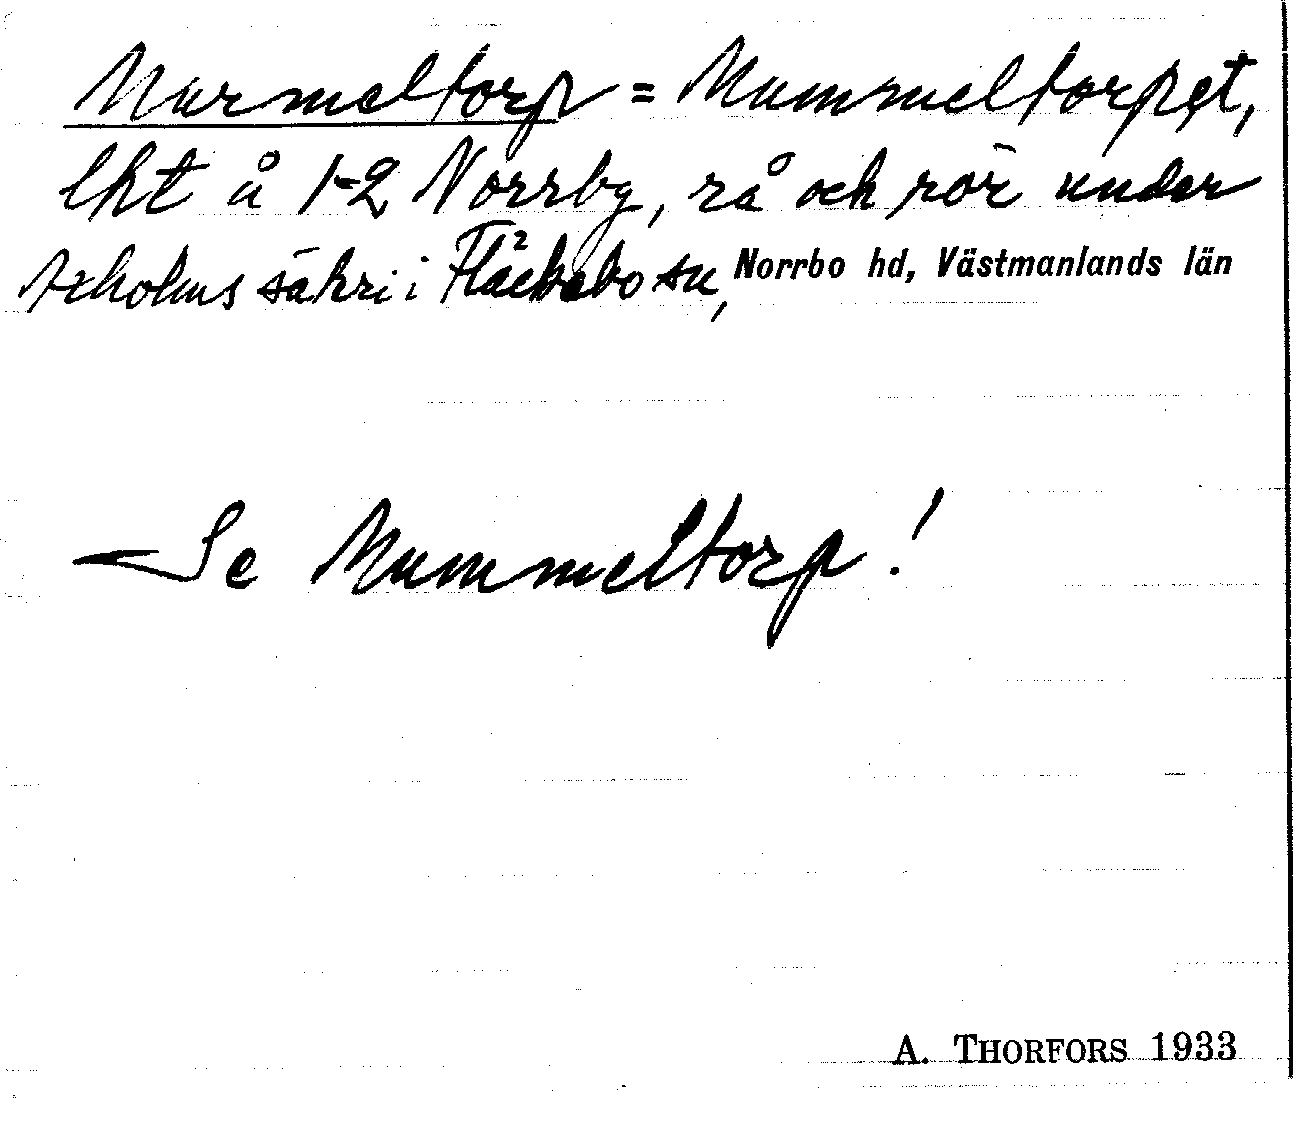 Murmeltorp = Mummeltorpet,
lht å 1-2 Norrby, rå och rör under
säkri i Fläckebo sn, Norrbo hd, Västmanlands län
Se Mummeltorp!
A. THORFORS 1933